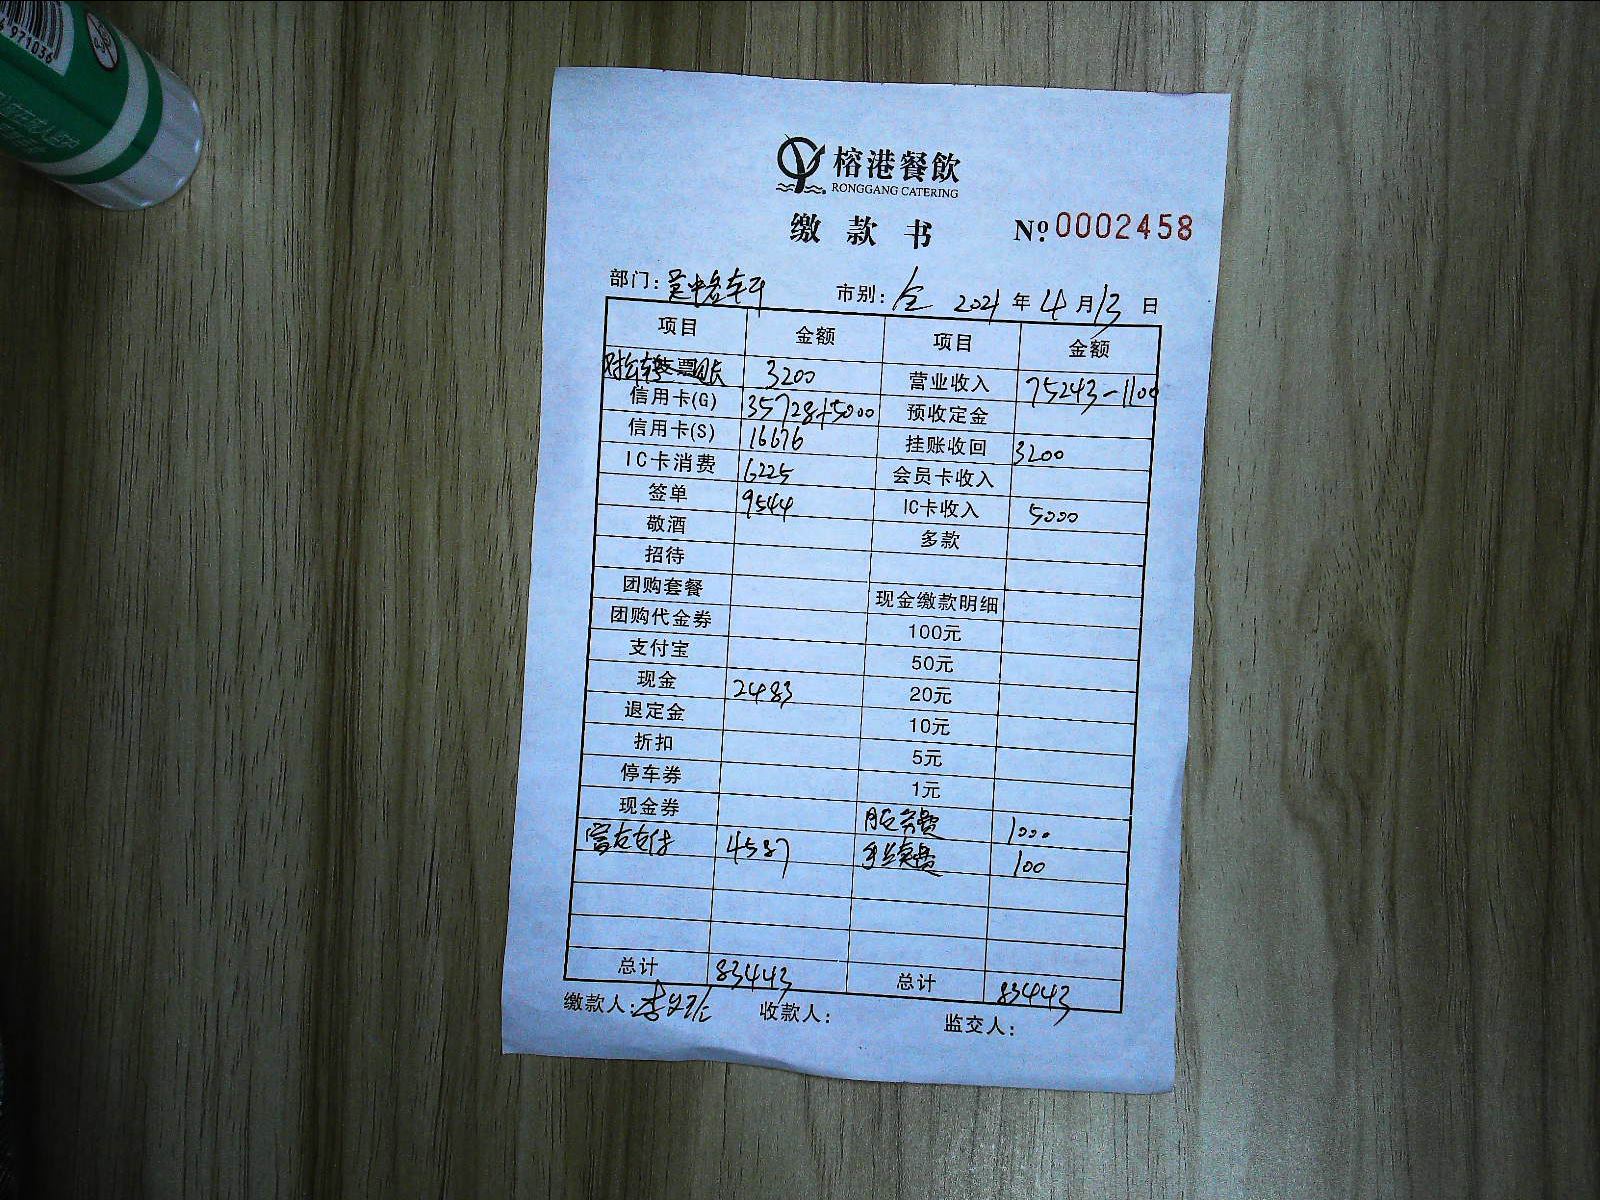 971036
榕港餐飲
RONGGANG CATERING
缴款书 Nº 0002458
部门: 市别: 全 2021 年 4 月 13 日
项目 金额 项目 金额
3200 营业收入 75243-1100
信用卡(G) 35728+5000 预收定金
信用卡(S) 16676 挂账收回 3200
IC卡消费 6225 会员卡收入
签单 9544 IC卡收入 5000
敬酒 多款
招待
团购套餐 现金缴款明细
团购代金券 100元
支付宝 50元
现金 2483 20元
退定金 10元
折扣 5元
停车券 1元
现金券 服务费 1000
富友支付 4587 手续费 100
总计 83443 总计 83443
缴款人: 收款人: 监交人: